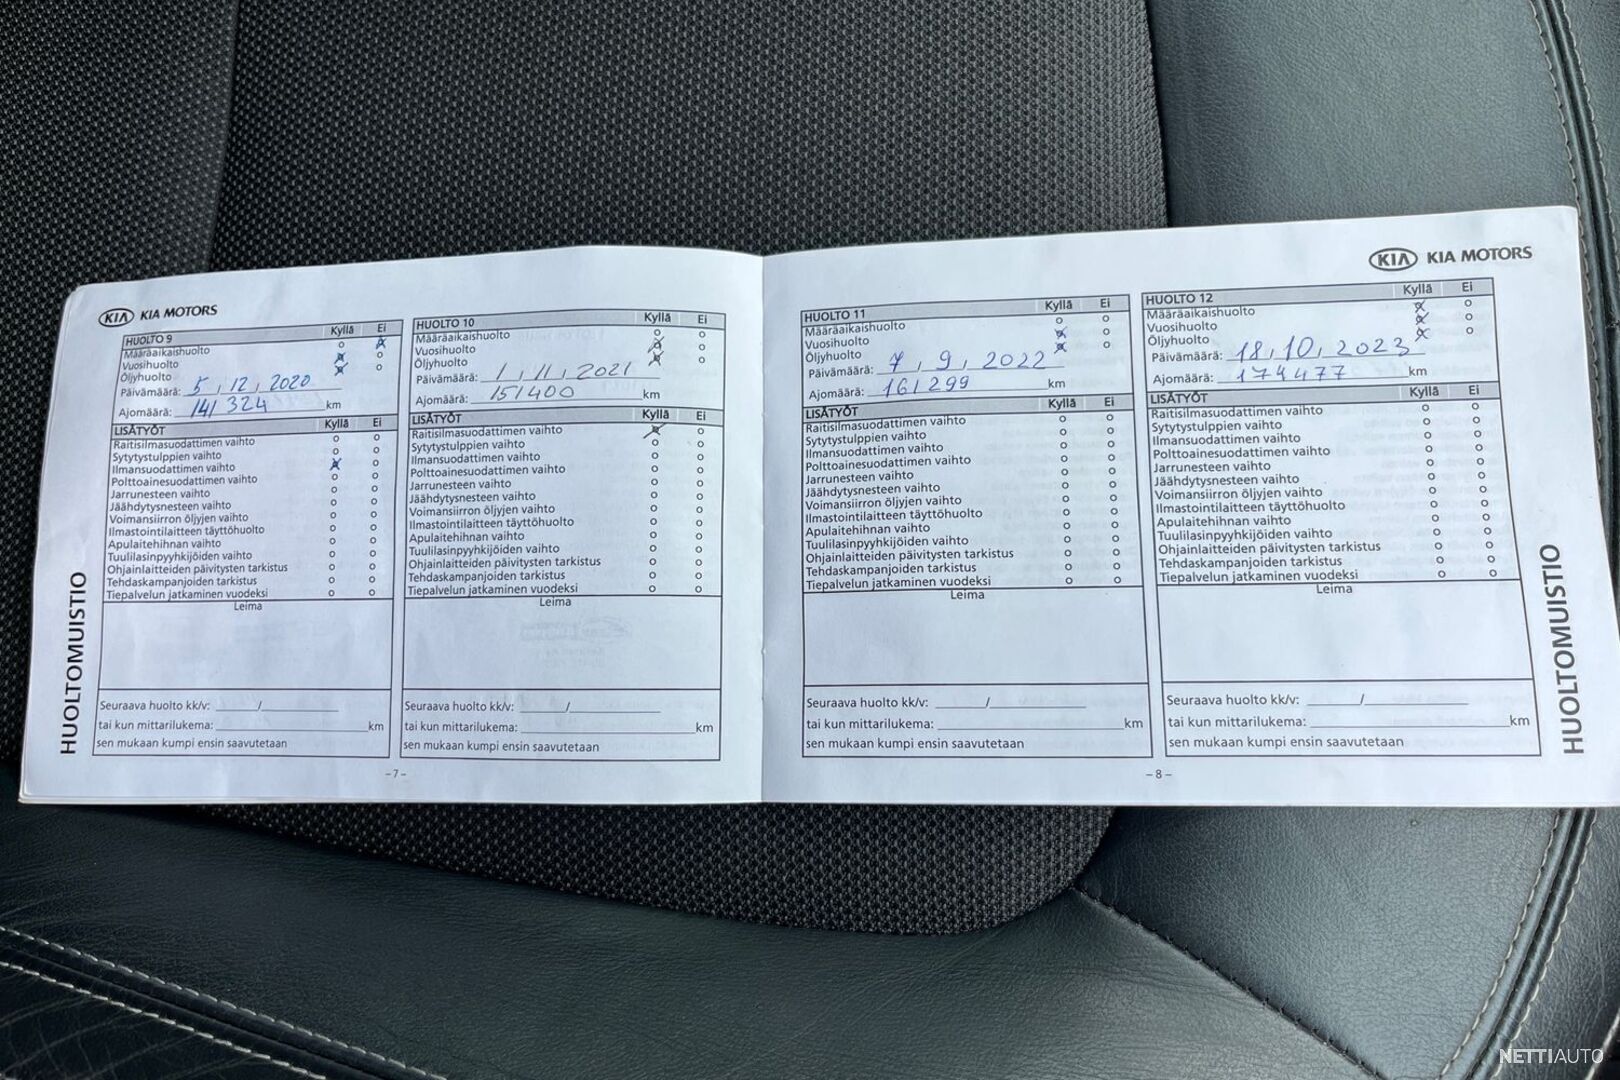 KIA KIA MOTORS
HUOLTO 9 Kyllä Ei
Määräaikaishuolto
Vuosihuolto
Öljyhuolto
Päivämäärä: 5, 12, 2020
Ajomäärä: 141 324 km
LISÄTYÖT Kyllä Ei
Raitisilmasuodattimen vaihto
Sytytystulppien vaihto
Ilmansuodattimen vaihto
Polttoainesuodattimen vaihto
Jarrunesteen vaihto
Jäähdytysnesteen vaihto
Voimansiirron öljyjen vaihto
Ilmastointilaitteen täyttöhuolto
Apulaitehihnan vaihto
Tuulilasinpyyhkijöiden vaihto
Ohjainlaitteiden päivitysten tarkistus
Tehdaskampanjoiden tarkistus
Tiepalvelun jatkaminen vuodeksi
Leima
Seuraava huolto kk/v: /
tai kun mittarilukema: km
sen mukaan kumpi ensin saavutetaan
HUOLTO 10 Kyllä Ei
Määräaikaishuolto
Vuosihuolto
Öljyhuolto
Päivämäärä: 1, 11, 2021
Ajomäärä: 151400 km
LISÄTYÖT Kyllä Ei
Raitisilmasuodattimen vaihto
Sytytystulppien vaihto
Ilmansuodattimen vaihto
Polttoainesuodattimen vaihto
Jarrunesteen vaihto
Jäähdytysnesteen vaihto
Voimansiirron öljyjen vaihto
Ilmastointilaitteen täyttöhuolto
Apulaitehihnan vaihto
Tuulilasinpyyhkijöiden vaihto
Ohjainlaitteiden päivitysten tarkistus
Tehdaskampanjoiden tarkistus
Tiepalvelun jatkaminen vuodeksi
Leima
Seuraava huolto kk/v: /
tai kun mittarilukema: km
sen mukaan kumpi ensin saavutetaan
HUOLTOMUISTIO
-7-
KIA KIA MOTORS
HUOLTO 11 Kyllä Ei
Määräaikaishuolto
Vuosihuolto
Öljyhuolto
Päivämäärä: 7, 9, 2022
Ajomäärä: 161299 km
LISÄTYÖT Kyllä Ei
Raitisilmasuodattimen vaihto
Sytytystulppien vaihto
Ilmansuodattimen vaihto
Polttoainesuodattimen vaihto
Jarrunesteen vaihto
Jäähdytysnesteen vaihto
Voimansiirron öljyjen vaihto
Ilmastointilaitteen täyttöhuolto
Apulaitehihnan vaihto
Tuulilasinpyyhkijöiden vaihto
Ohjainlaitteiden päivitysten tarkistus
Tehdaskampanjoiden tarkistus
Tiepalvelun jatkaminen vuodeksi
Leima
Seuraava huolto kk/v: /
tai kun mittarilukema: km
sen mukaan kumpi ensin saavutetaan
HUOLTO 12 Kyllä Ei
Määräaikaishuolto
Vuosihuolto
Öljyhuolto
Päivämäärä: 18, 10, 2023
Ajomäärä: 174477 km
LISÄTYÖT Kyllä Ei
Raitisilmasuodattimen vaihto
Sytytystulppien vaihto
Ilmansuodattimen vaihto
Polttoainesuodattimen vaihto
Jarrunesteen vaihto
Jäähdytysnesteen vaihto
Voimansiirron öljyjen vaihto
Ilmastointilaitteen täyttöhuolto
Apulaitehihnan vaihto
Tuulilasinpyyhkijöiden vaihto
Ohjainlaitteiden päivitysten tarkistus
Tehdaskampanjoiden tarkistus
Tiepalvelun jatkaminen vuodeksi
Leima
Seuraava huolto kk/v: /
tai kun mittarilukema: km
sen mukaan kumpi ensin saavutetaan
HUOLTOMUISTIO
-8-
NETTIAUTO